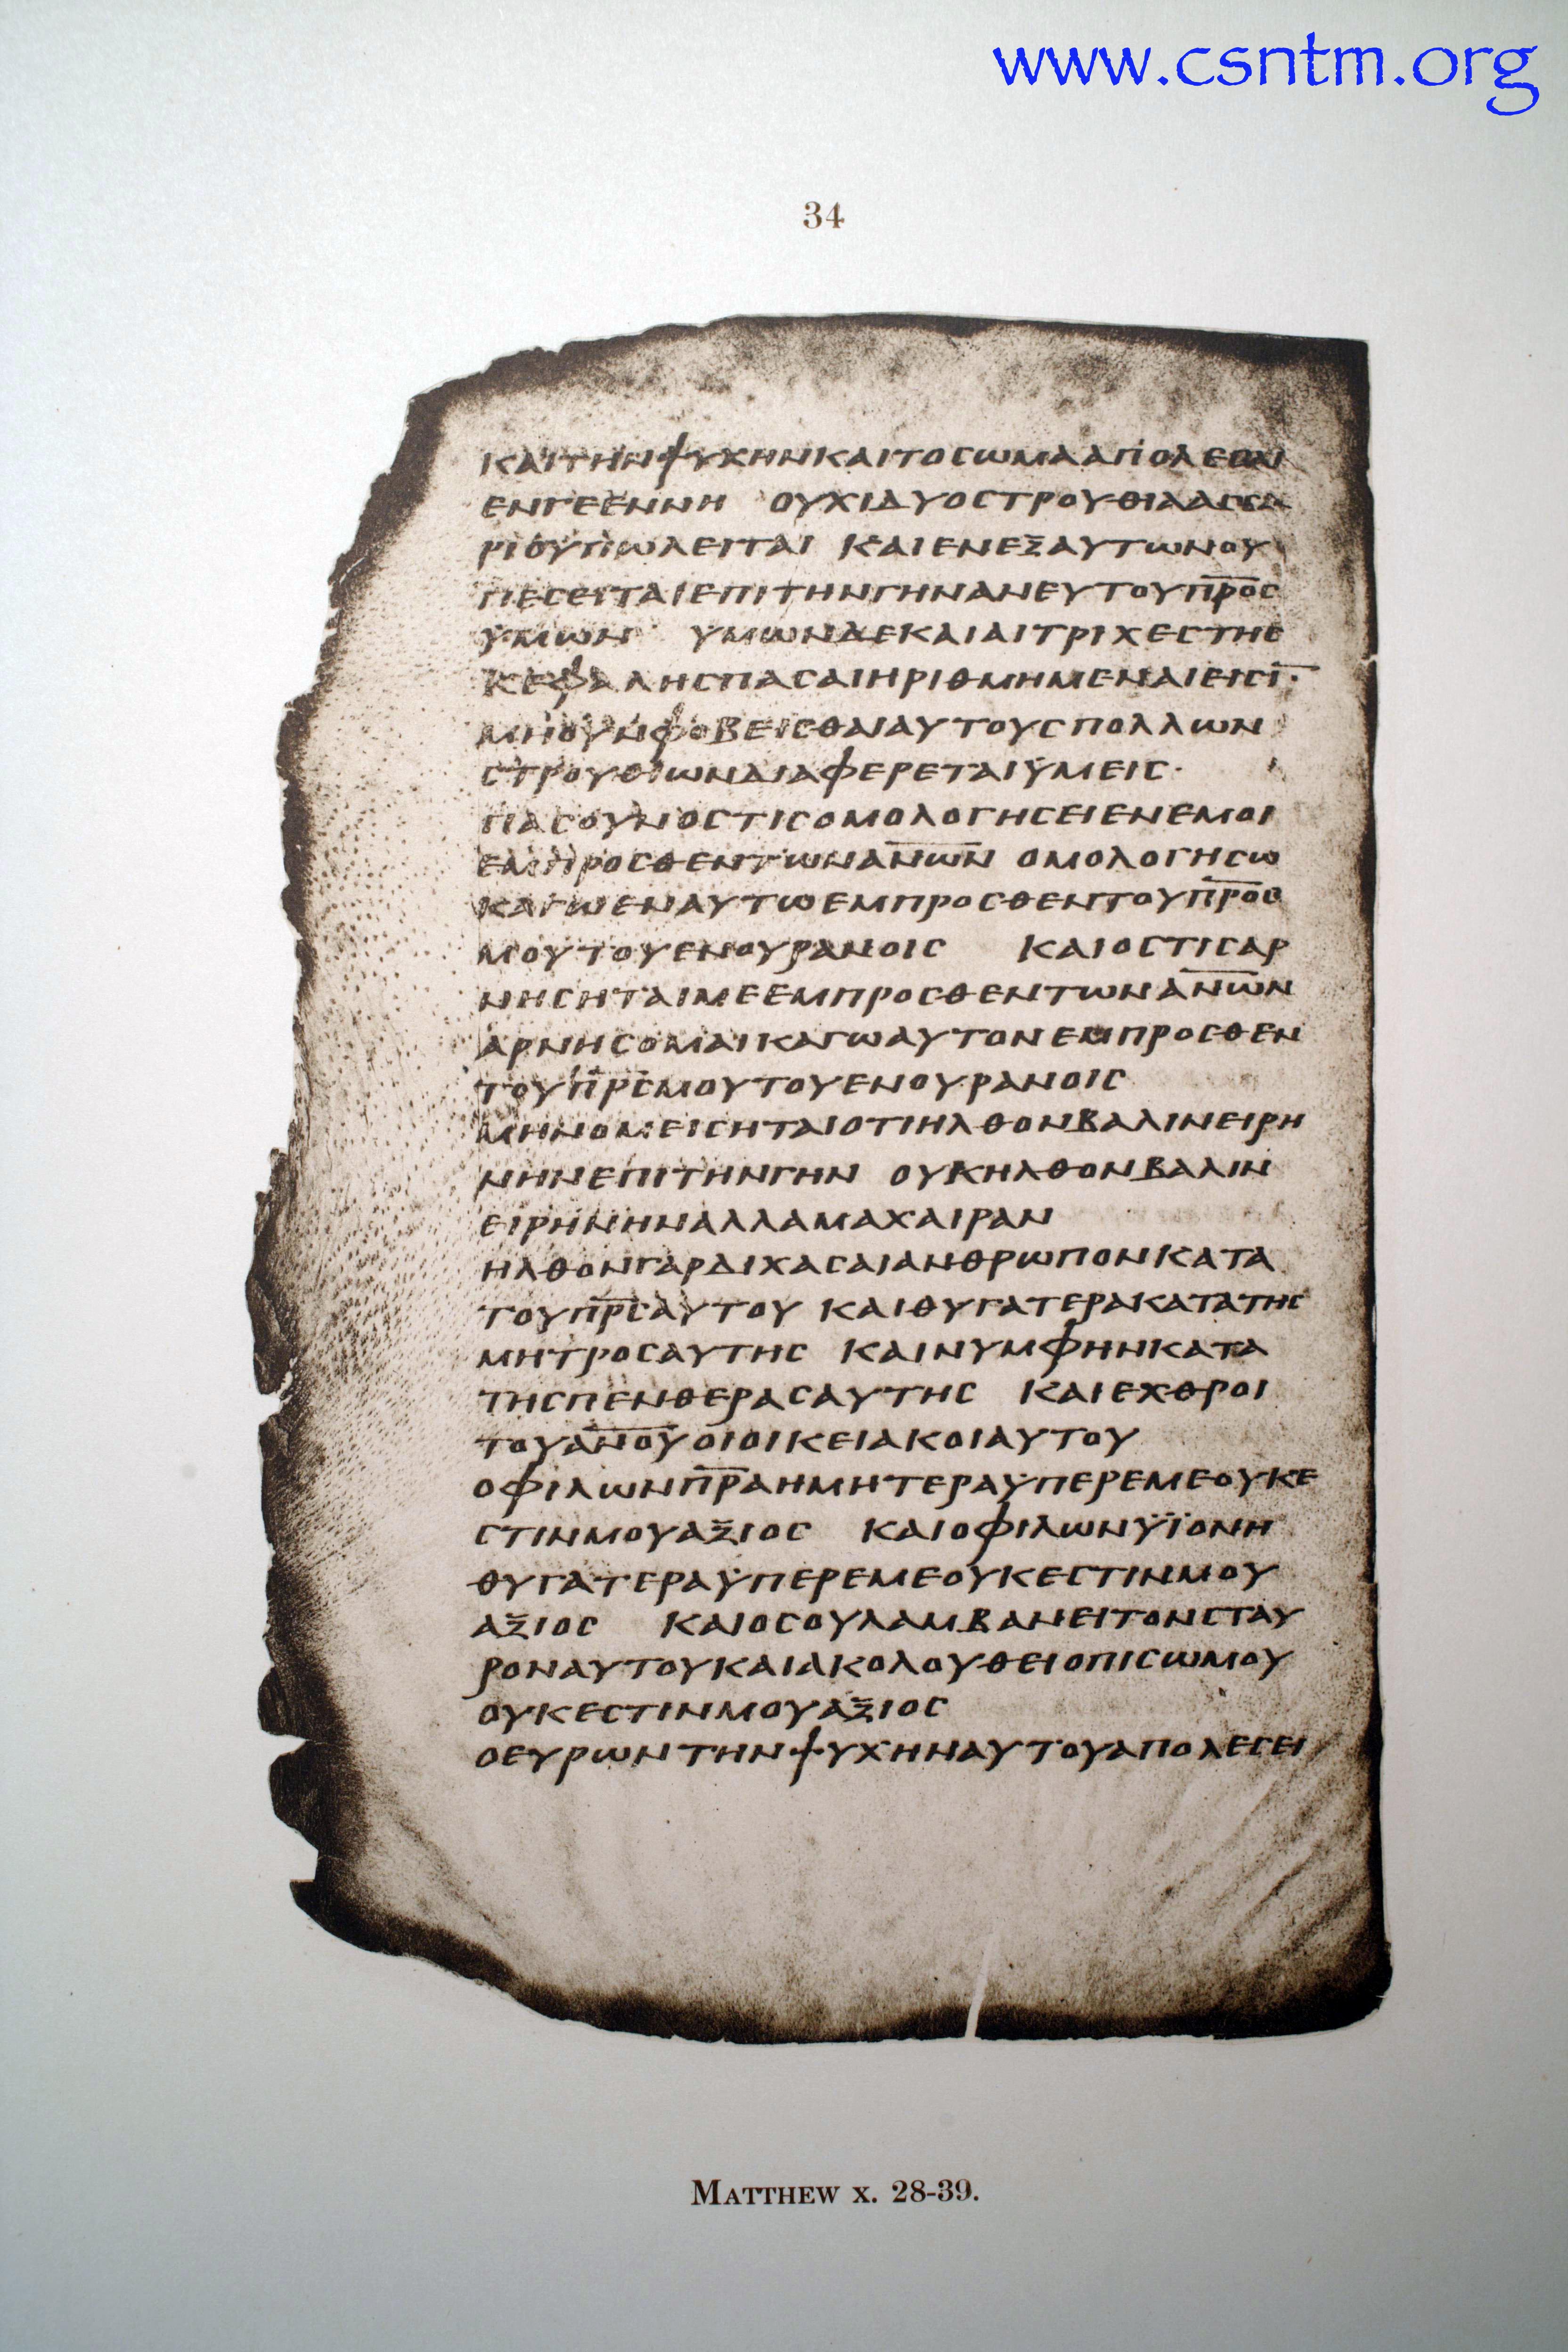 www.csntm.org
34
ΚΑΙΤΗΝΨΥΧΗΝΚΑΙΤΟϹΩΜΑΑΠΟΛΕϹΑΙ
ΕΝΓΕΕΝΝΗ ΟΥΧΙΔΥΟϹΤΡΟΥΘΙΑΑϹϹΑ
ΡΙΟΥΠΩΛΕΙΤΑΙ ΚΑΙΕΝΕΞΑΥΤΩΝΟΥ
ΠΕϹΕΙΤΑΙΕΠΙΤΗΝΓΗΝΑΝΕΥΤΟΥΠ̅Ρ̅Ο̅Ϲ
ΥΜΩΝ ΥΜΩΝΔΕΚΑΙΑΙΤΡΙΧΕϹΤΗϹ
ΚΕΦΑΛΗϹΠΑϹΑΙΗΡΙΘΜΗΜΕΝΑΙΕΙϹΙ̅·
ΜΗΟΥΝΦΟΒΕΙϹΘΑΙΑΥΤΟΥϹΠΟΛΛΩΝ
ϹΤΡΟΥΘΙΩΝΔΙΑΦΕΡΕΤΑΙΫΜΕΙϹ·
ΠΑϹΟΥΝΟϹΤΙϹΟΜΟΛΟΓΗϹΕΙΕΝΕΜΟΙ
ΕΜΠΡΟϹΘΕΝΤΩΝΑ̅Ν̅Ω̅Ν̅ ΟΜΟΛΟΓΗϹΩ
ΚΑΓΩΕΝΑΥΤΩΕΜΠΡΟϹΘΕΝΤΟΥΠ̅Ρ̅Ο̅Ϲ
ΜΟΥΤΟΥΕΝΟΥΡΑΝΟΙϹ ΚΑΙΟϹΤΙϹΑΡ
ΝΗϹΗΤΑΙΜΕΕΜΠΡΟϹΘΕΝΤΩΝΑ̅Ν̅Ω̅Ν
ΑΡΝΗϹΟΜΑΙΚΑΓΩΑΥΤΟΝΕΜΠΡΟϹΘΕΝ
ΤΟΥΠ̅Ρ̅Ϲ̅ΜΟΥΤΟΥΕΝΟΥΡΑΝΟΙϹ
ΜΗΝΟΜΕΙϹΗΤΑΙΟΤΙΗΛΘΟΝΒΑΛΙΝΕΙΡΗ
ΝΗΝΕΠΙΤΗΝΓΗΝ ΟΥΚΗΛΘΟΝΒΑΛΙΝ
ΕΙΡΗΝΗΝΑΛΛΑΜΑΧΑΙΡΑΝ
ΗΛΘΟΝΓΑΡΔΙΧΑϹΑΙΑΝΘΡΩΠΟΝΚΑΤΑ
ΤΟΥΠ̅Ρ̅Ϲ̅ΑΥΤΟΥ ΚΑΙΘΥΓΑΤΕΡΑΚΑΤΑΤΗϹ
ΜΗΤΡΟϹΑΥΤΗϹ ΚΑΙΝΥΜΦΗΝΚΑΤΑ
ΤΗϹΠΕΝΘΕΡΑϹΑΥΤΗϹ ΚΑΙΕΧΘΡΟΙ
ΤΟΥΑ̅Ν̅Ο̅Υ̅ΟΙΟΙΚΕΙΑΚΟΙΑΥΤΟΥ
ΟΦΙΛΩΝΠ̅Ρ̅ΑΗΜΗΤΕΡΑΫΠΕΡΕΜΕΟΥΚΕ
ϹΤΙΝΜΟΥΑΞΙΟϹ ΚΑΙΟΦΙΛΩΝΫΪΟΝΗ
ΘΥΓΑΤΕΡΑΫΠΕΡΕΜΕΟΥΚΕϹΤΙΝΜΟΥ
ΑΞΙΟϹ ΚΑΙΟϹΟΥΛΑΜΒΑΝΕΙΤΟΝϹΤΑΥ
ΡΟΝΑΥΤΟΥΚΑΙΑΚΟΛΟΥΘΕΙΟΠΙϹΩΜΟΥ
ΟΥΚΕϹΤΙΝΜΟΥΑΞΙΟϹ
ΟΕΥΡΩΝΤΗΝΨΥΧΗΝΑΥΤΟΥΑΠΟΛΕϹΕΙ
MATTHEW X. 28-39.